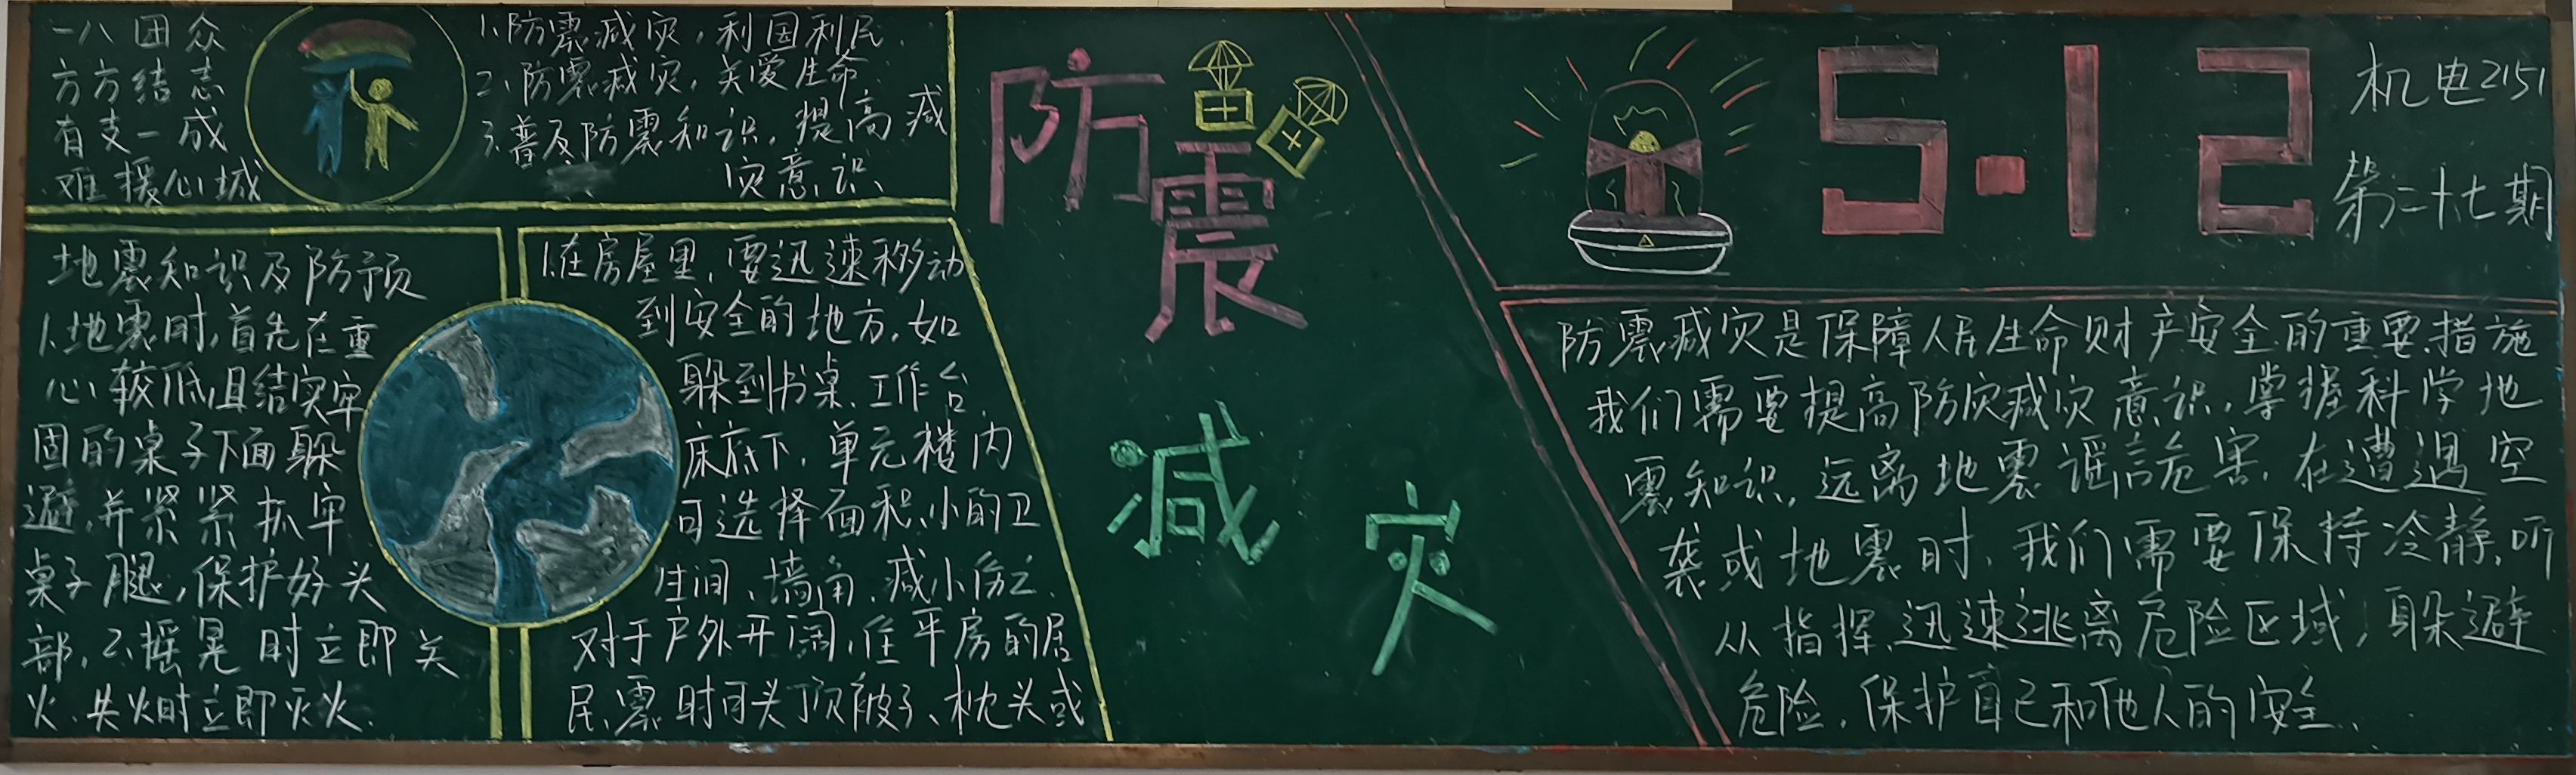 一八团众
方方结志
有支一成
难援心城
1.防震减灾，利国利民.
2、防震减灾，关爱生命.
3.普及防震知识，提高减
灾意识、
地震知识及防预
1.地震时，首先在重
心较低，且结实牢
固的桌子下面躲
避，并紧紧抓牢
桌子腿，保护好头
部，2、摇晃时立即关
火、失火时立即灭火.
1.在房屋里，要迅速移动
到安全的地方，如
躲到书桌、工作台、
床底下，单元楼内
可选择面积小的卫
生间、墙角，减小伤亡.
对于户外开阔，住平房的居
民，震时可头顶被子、枕头或
防震
减灾
5.12
机电2151
第二十七期
防震减灾是保障人民生命财产安全的重要措施
我们需要提高防灾减灾意识，掌握科学地
震知识，远离地震谣言危害，在遭遇空
袭或地震时，我们需要保持冷静，听
从指挥，迅速逃离危险区域，躲避
危险，保护自己和他人的安全.